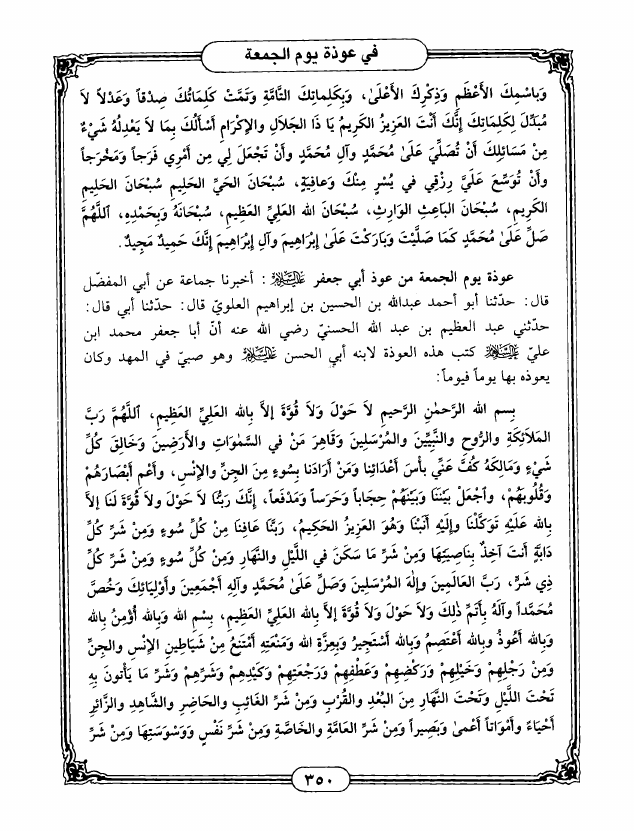 في عوذة يوم الجمعة
وَبِاسْمِكَ الأَعْظَمِ وَذِكْرِكَ الأَعْلَىٰ، وَبِكَلِماتِكَ التَّامَّةِ وَتَمَّتْ كَلِمَاتُكَ صِدْقاً وَعَدْلاً لاَ
مُبَدِّلَ لِكَلِمَاتِكَ إِنَّكَ أَنْتَ العَزِيزُ الكَرِيمُ يَا ذَا الجَلاَلِ والإِكْرَامِ أَسْأَلُكَ بِمَا لاَ يَعْدِلُهُ شَيْءٌ
مِنْ مَسَائِلِكَ أَنْ تُصَلِّيَ عَلَىٰ مُحَمَّدٍ وَآلِ مُحَمَّدٍ وَأَنْ تَجْعَلَ لِي مِن أَمْرِي فَرَجاً وَمَخْرَجاً
وَأَنْ تُوَسِّعَ عَلَيَّ رِزْقِي في يُسْرٍ مِنْكَ وَعَافِيَةٍ، سُبْحَانَ الحَيِّ الحَلِيمِ سُبْحَانَ الحَلِيمِ
الكَرِيمِ، سُبْحَانَ البَاعِثِ الوَارِثِ، سُبْحَانَ الله العَلِيِّ العَظِيمِ، سُبْحَانَهُ وَبِحَمْدِهِ، ٱللَّهُمَّ
صَلِّ عَلَىٰ مُحَمَّدٍ كَمَا صَلَّيْتَ وَبَارَكْتَ عَلَىٰ إِبْرَاهِيمَ وَآلِ إِبْرَاهِيمَ إِنَّكَ حَمِيدٌ مَجِيدٌ.
عوذة يوم الجمعة من عوذ أبي جعفر عليه السلام: أخبرنا جماعة عن أبي المفضّل
قال: حدّثنا أبو أحمد عبدالله بن الحسين بن إبراهيم العلويّ قال: حدّثنا أبي قال:
حدّثني عبد العظيم بن عبد الله الحسنيّ رضي الله عنه أنّ أبا جعفر محمد ابن
عليّ عليه السلام كتب هذه العوذة لابنه أبي الحسن عليه السلام وهو صبيّ في المهد وكان
يعوذه بها يوماً فيوماً:
بِسم الله الرَّحمٰنِ الرَّحيمِ لاَ حَوْلَ وَلاَ قُوَّةَ إلاَّ بِالله العَلِيِّ العَظِيمِ، ٱللَّهُمَّ رَبَّ
المَلاَئِكَةِ والرُّوحِ والنَّبِيِّينَ والمُرْسَلِينَ وَقَاهِرَ مَنْ في السَّمٰوَاتِ والأَرَضِينَ وَخَالِقَ كُلِّ
شَيْءٍ وَمَالِكَهُ كُفَّ عَنِّي بَأْسَ أَعْدَائِنا وَمَنْ أَرَادَنَا بِسُوءٍ مِنَ الجِنِّ والإِنْسِ، وَأَعْمِ أَبْصَارَهُمْ
وَقُلُوبَهُمْ، وَاجْعَلْ بَيْنَنَا وَبَيْنَهُمْ حِجَاباً وَحَرَساً وَمَدْفَعاً، إِنَّكَ رَبُّنَا لاَ حَوْلَ ولاَ قُوَّةَ لَنَا إلاَّ
بِالله عَلَيْهِ تَوَكَّلْنَا وإِلَيْهِ أَنَبْنَا وَهُوَ العَزِيزُ الحَكِيمُ، رَبَّنَا عَافِنَا مِنْ كُلِّ سُوءٍ وَمِنْ شَرِّ كُلِّ
دَابَّةٍ أنتَ آخِذٌ بِنَاصِيَتِهَا وَمِنْ شَرِّ مَا سَكَنَ في اللَّيْلِ والنَّهَارِ وَمِنْ كُلِّ سُوءٍ وَمِنْ شَرِّ كُلِّ
ذِي شَرٍّ، رَبَّ العَالَمِينَ وَإِلٰهَ المُرْسَلِينَ وَصَلِّ عَلَىٰ مُحَمَّدٍ وَآلِهِ أَجْمَعِينَ وَأَوْلِيَائِكَ وَخُصَّ
مُحَمَّداً وَآلَهُ بِأَتَمِّ ذٰلِكَ وَلاَ حَوْلَ وَلاَ قُوَّةَ إلاَّ بِالله العَلِيِّ العَظِيمِ، بِسْمِ الله وَبِالله أُؤْمِنُ بِالله
وَبِالله أَعُوذُ وبِالله أَعْتَصِمُ وَبِالله أَسْتَجِيرُ وَبِعِزَّةِ الله وَمَنْعَتِهِ أَمْتَنِعُ مِنْ شَيَاطِينِ الإِنْسِ والجِنِّ
وَمِنْ رَجِلِهِمْ وَخَيْلِهِمْ وَرَكْضِهِمْ وَعَطْفِهِمْ وَرَجْعَتِهِمْ وَكَيْدِهِمْ وَشَرِّهِمْ وَشَرِّ مَا يَأتونَ بِهِ
تَحْتَ اللَّيْلِ وَتَحْتَ النَّهَارِ مِنَ البُعْدِ والقُرْبِ وَمِنْ شَرِّ الغَائِبِ والحَاضِرِ والشَّاهِدِ والزَّائِرِ
أَحْيَاءً وَأَمْوَاتاً أَعْمىٰ وَبَصِيراً وَمِنْ شَرِّ العَامَّةِ والخَاصَّةِ وَمِنْ شَرِّ نَفْسٍ وَوَسْوَسَتِهَا وَمِنْ شَرِّ
٣٥٠